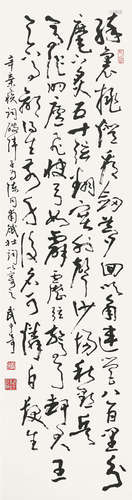 醉裏挑燈看劍夢回吹角連營八百里分
麾下炙五十弦翻塞外聲沙場秋點兵
馬作的盧飛快弓如霹靂弦驚了卻君王
天下事贏得生前身後名可憐白髮生
辛棄疾詞破陣子為陳同甫賦壯詞以寄之